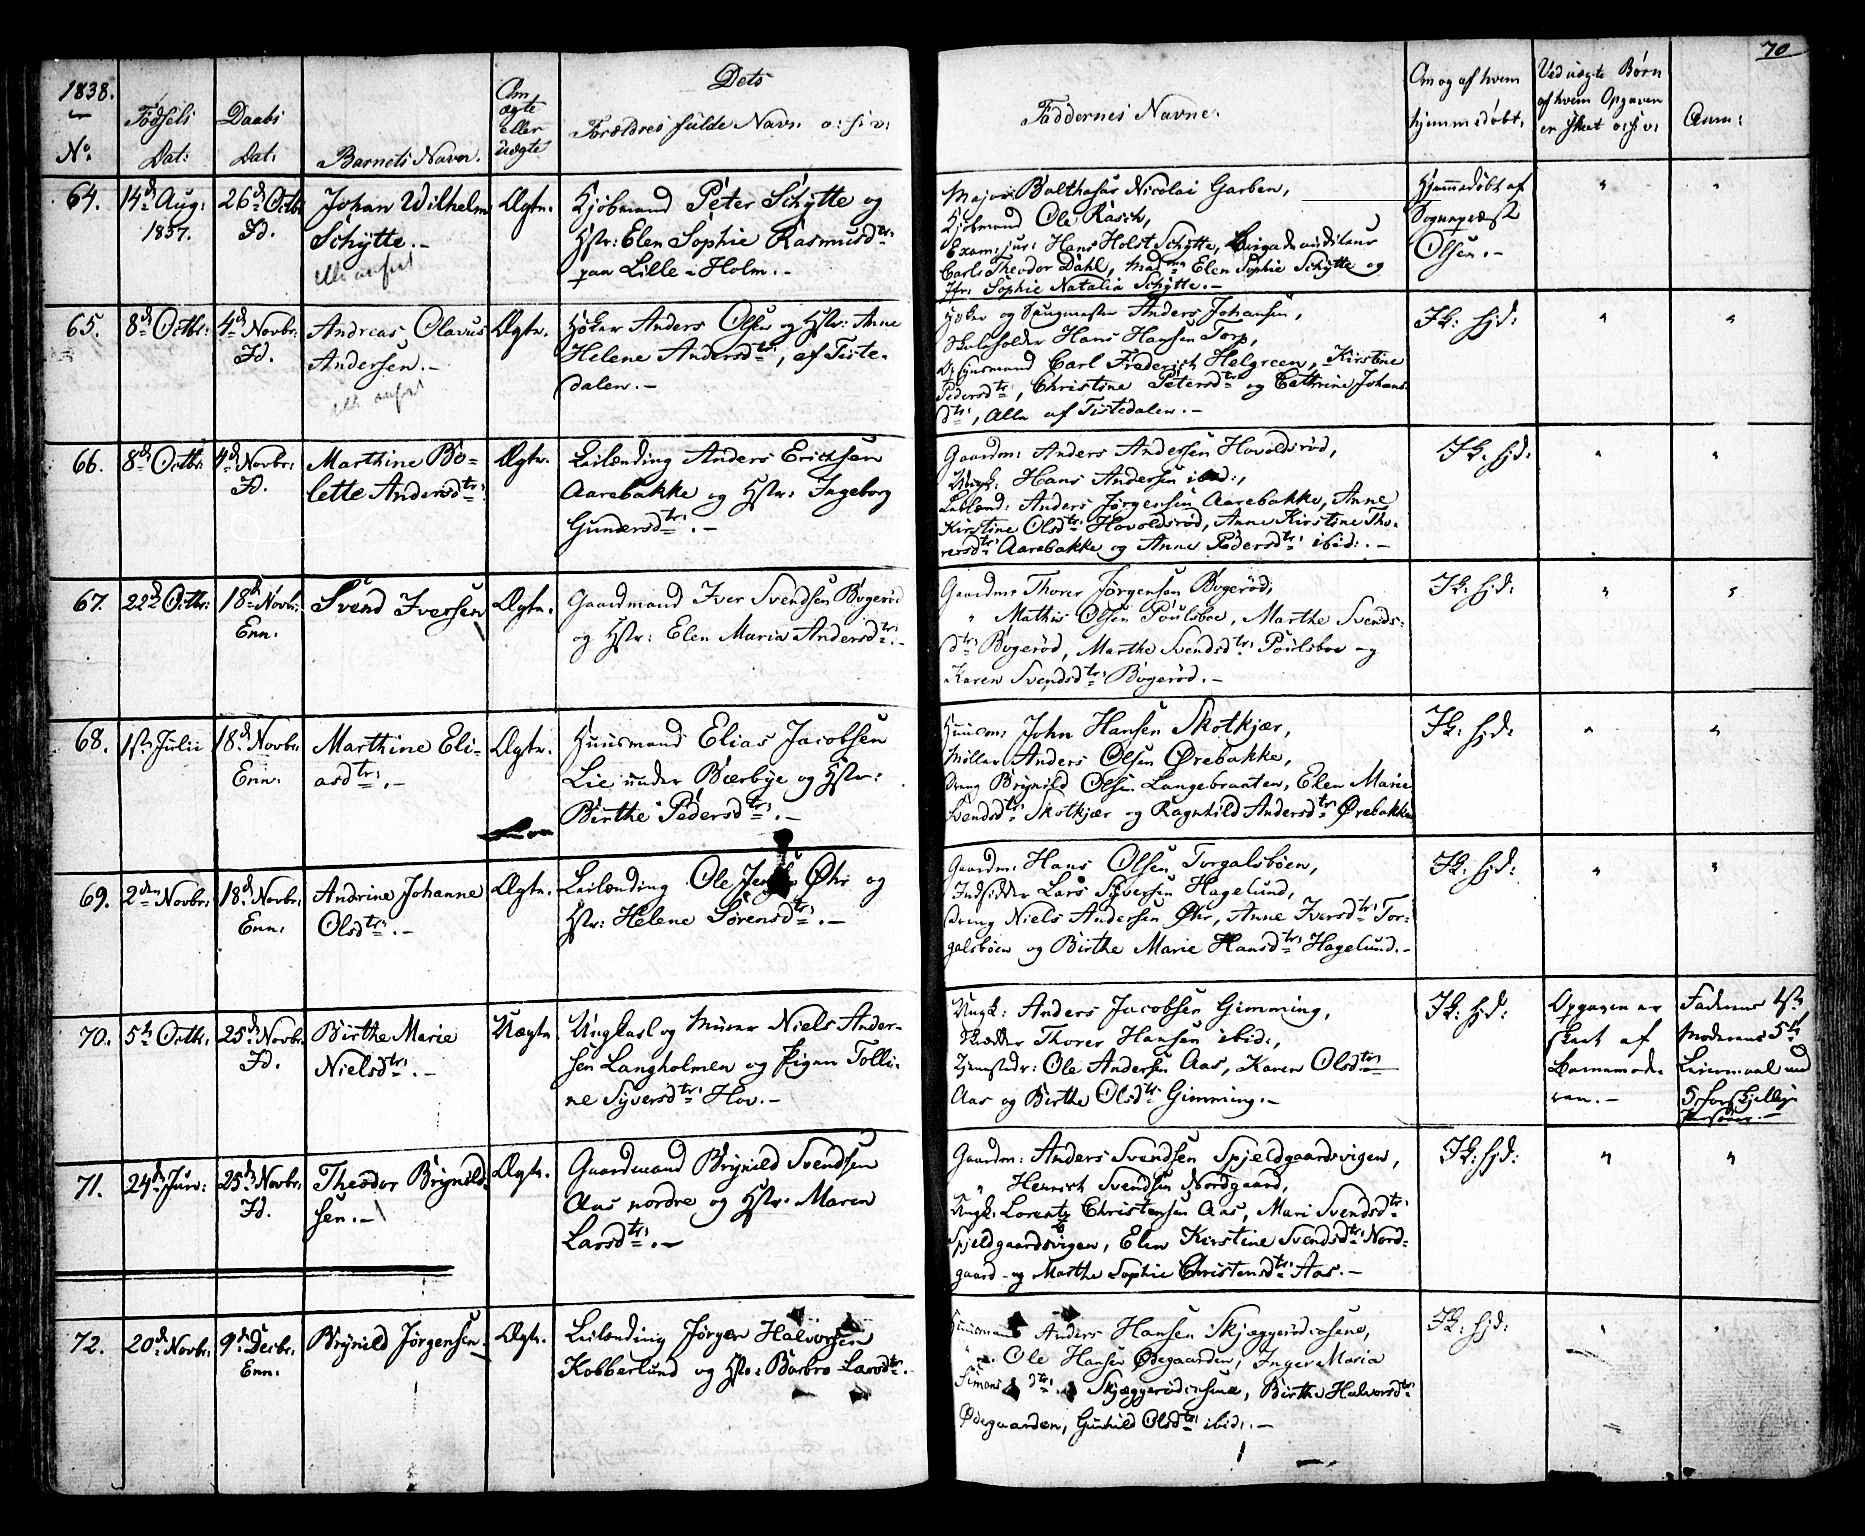 70
1838.
No.
Fødsels
Dat:
Daabs
Dat:
Barnets Navn.
Om
ægte
eller
uægte
Dets
Forældres fulde Navn o: s: v:
Faddernes Navne.
Om og af hvem
hjemmedøbt.
Ved uægte Børn
af hvem Opgaven
er skeet o: s: v:
Anm:
64.
14de Aug:
1837.
26de Octbr
Fd.
Johan Wilhelm
Schÿtte.-
Ægte.
Kjøbmand Peter Schÿtte og
Hstr: Elen Sophie Rasmusdtr:
paa Lille-Holm.-
Major Balthasar Nicolai Garben,
Kjøbmand Ole Rasch,
Exam: jur: Hans Holst Schÿtte, Brigadeauditeur
Carl Theodor Dahl, Madme Elen Sophie Schÿtte og
Jfr: Sophie Natalia Schÿtte.-
Hjemmedøbt af
Sognepræst
Olsen.-
"
"
65.
8de Octbr:
4de Novbr:
Fd.
Andreas Olavus
Andersen.-
Ægte.
Høker Anders Olsen og Hstr: Anne
Helene Andersdtr:, af Tiste-
dalen.-
Høker og Saugmester Anders Johansen,
Skoleholder Hans Hansen Torp,
Opsynsmand Carl Frederich Helgreen, Kirstine
Pedersdtr:, Christine Petersdtr: og Cathrine Johans-
dtr:, Alle af Tistedalen.-
Ik: hjd:
"
"
66.
8de Octbr:
4de Novbr:
Fd.
Marthine Bo-
lette Andersdtr:
Ægte.
Leilænding Anders Ericksen
Aarebakke og Hstr: Ingeborg
Gundersdtr:.-
Gaardm: Anders Andersen Hovoldsrød,
Ungk: Hans Andersen ibid:,
Leilænd: Anders Jørgensen Aarebakke, Anne
Kirstine Olsdtr: Hovoldsrød, Anne Kirstine Tho-
rersdtr: Aarebakke og Anne Pedersdtr: ibid:.-
Ik: hjd:
"
"
67.
22de Octbr:
18de Novbr:
Enn.
Svend Iversen
Ægte.
Gaardmand Iver Svendsen Bøgerød
og Hstr: Elen Maria Andersdtr:.-
Gaardm: Thorer Jørgensen Bøgerød,
" Mathis Olsen Poulsboe, Marthe Svends-
dtr: Bøgerød, Marthe Svendsdtr: Poulsboe og
Karen Svendsdtr: Bøgerød.-
Ik: hjd:
"
"
68.
1ste Julii
18de Novbr:
Enn:
Marthine Eli-
asdtr:.-
Ægte.
Huusmand Elias Jacobsen
Lie under Bærbÿe og Hstr:
Birthe Pedersdtr:.-
Huusm: John Hansen Skotkjær,
Møller Anders Olsen Ørebakke,
Dreng Brÿnild Olsen Langebraaten, Elen Marie
Svendsdtr: Skotkjær og Ragnhild Andersdtr: Ørebakke
Ik: hjd:
"
"
69.
2den Novbr:
18de Novbr:
Enn:
Andrine Johanne
Olsdtr:.-
Ægte.
Leilænding Ole Øhr og
Hstr: Helene Sørensdtr:.-
Gaardm: Hans Olsen Torgalsbøen,
Indsidder Lars Sÿversen Hagelund,
Dreng Niels Andersen Øhr, Anne Iversdtr: Tor-
galsbøen og Birthe Marie Hansdtr: Hagelund.-
Ik: hjd:
"
"
70.
5te Octbr:
25de Novbr:
Fd.
Birthe Marie
Nielsdtr:.-
Uægte
Ungkarl og Murer Niels Ander-
sen Langholmen og Pigen Tolli-
ne Sÿversdtr: Hov.-
Ungk: Anders Jacobsen Gimming,
Skrædder Thorer Hansen ibid:,
Tjenestedr: Ole Andersen Aas, Karen Olsdtr:
Aas og Birthe Olsdtr: Gimming.-
Ik: hjd:
Opgaven er
skeet af
Barnemode-
ren.-
Faderens 1ste
Moderens 5te
Leiermaal med
5 forskjellige
Personer.-
71.
24de Jun:
25de Novbr:
Fd.
Theodor Brÿnild-
sen.-
Ægte.
Gaardmand Brÿnild Svendsen
Aas nordre og Hstr: Maren
Larsdtr:.-
Gaardm: Anders Svendsen Spjeldgaardsvigen,
" Henrich Svendsen Nordgaard,
Ungk: Lorentz Christensen Aas, Mari Svendsdtr:
Spjeldgaardsvigen, Elen Kirstine Svendsdtr: Nord-
gaard og Marthe Sophie Christensdtr: Aas.-
Ik: hjd:
"
"
72.
20de Novbr:
9de Decbr:
Enn:
Brÿnild Jørgensen.
Ægte.
Leilænding Jørgen Halvorsen
Kobberlund og Hstr: Barbro Larsdtr:.-
Huusmand Anders Hansen Skjæggerødeiene,
" Ole Hansen Ødegaarden, Inger Maria
Simonsdtr: Skjæggerødeiene, Birthe Halvorsdtr:
Ødegaarden, Gunhild Olsdtr: ibid:.-
Ik: hjd:
"
"